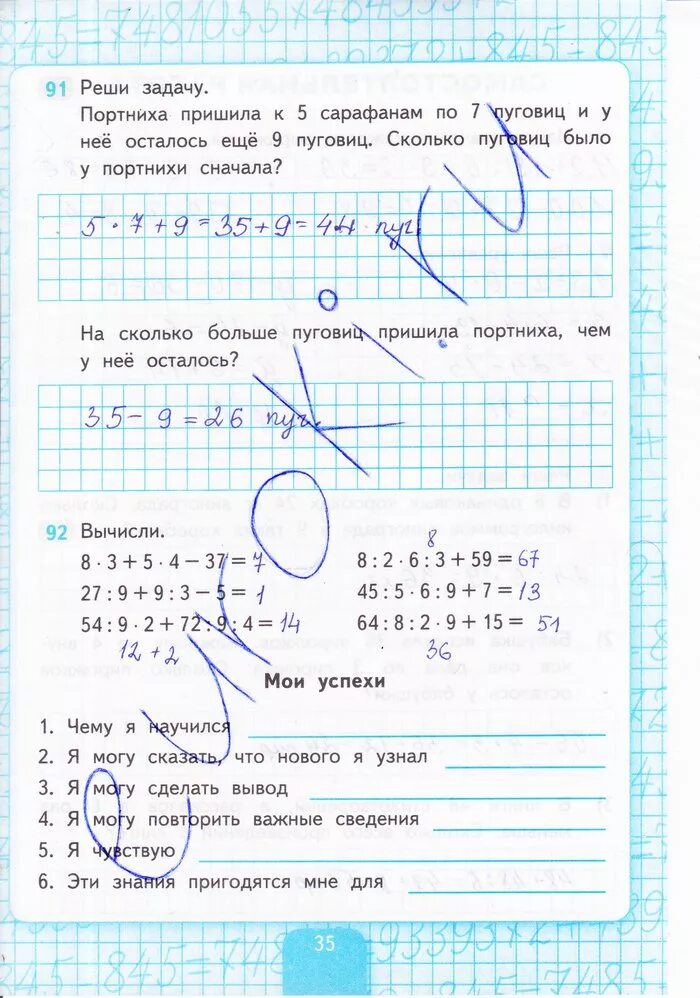 91 Реши задачу.
Портниха пришила к 5 сарафанам по 7 пуговиц и у
неё осталось ещё 9 пуговиц. Сколько пуговиц было
у портнихи сначала?
5 · 7 + 9 = 35 + 9 = 44 пуг.
На сколько больше пуговиц пришила портниха, чем
у неё осталось?
35 – 9 = 26 пуг.
92 Вычисли.
8
8 · 3 + 5 · 4 – 37 = 7 8 : 2 · 6 : 3 + 59 = 67
27 : 9 + 9 : 3 – 5 = 1 45 : 5 · 6 : 9 + 7 = 13
54 : 9 · 2 + 72 : 9 : 4 = 14 64 : 8 : 2 · 9 + 15 = 51
12 + 2 36
Мои успехи
1. Чему я научился
2. Я могу сказать, что нового я узнал
3. Я могу сделать вывод
4. Я могу повторить важные сведения
5. Я чувствую
6. Эти знания пригодятся мне для
35
uroki.ru